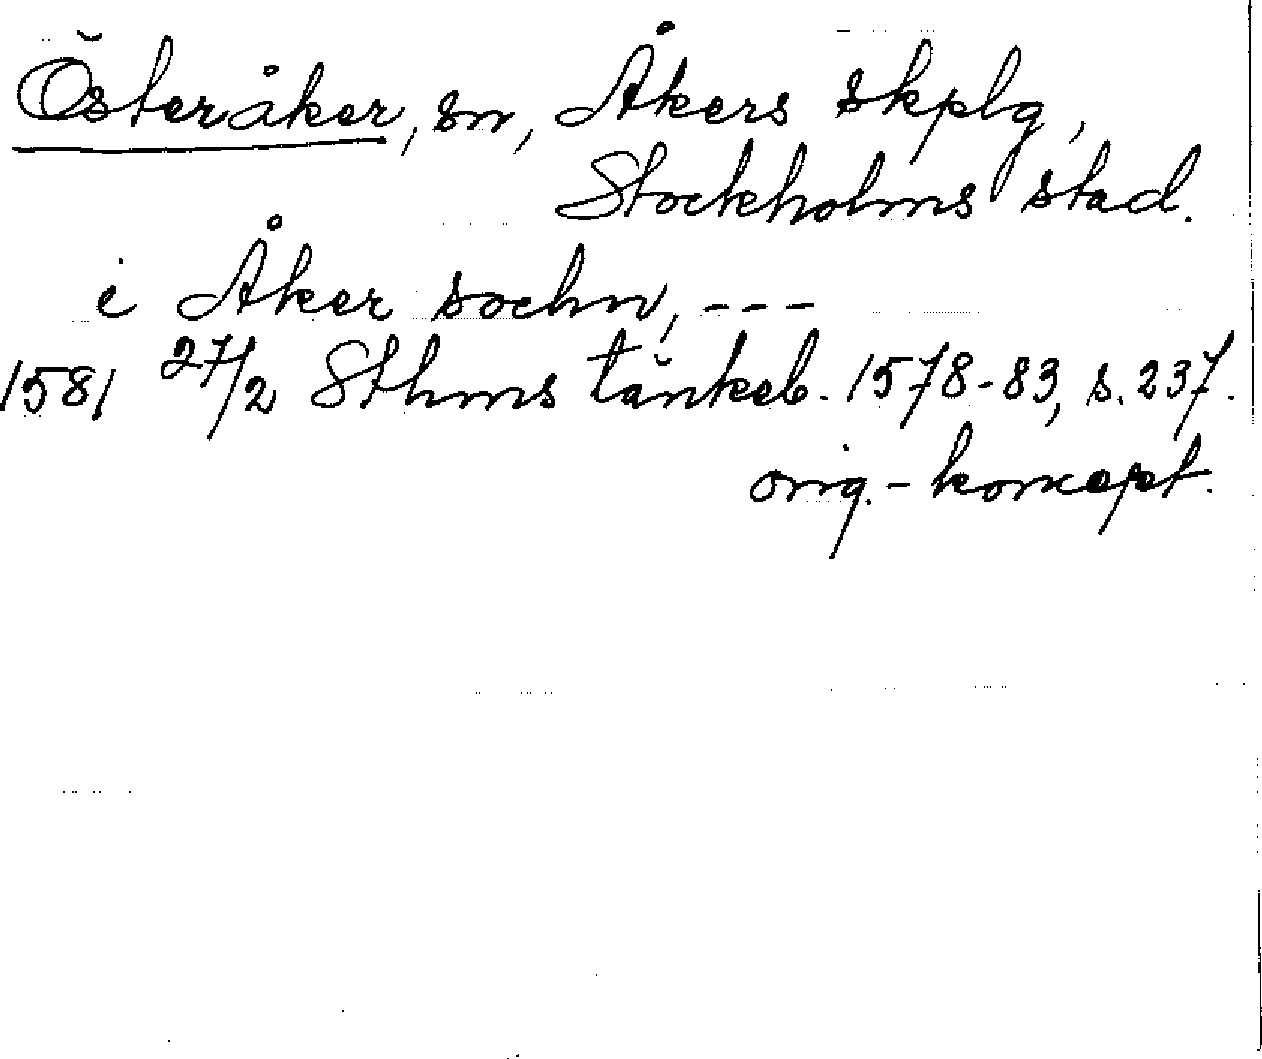 Österåker, sn, Åkers skplg,
Stockholms stad.
i Åker sochn, ---
1581 27/2 Sthms tänkeb. 1578-83, s. 237.
orig.-koncept.